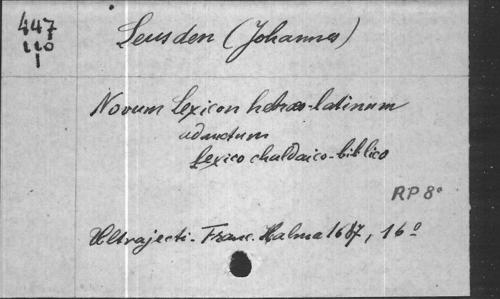 447
110
1
Leusden (Johannes)
Novum Lexicon hebræo-latinum
adauctum
Lexico chaldaico-biblico
RP 8º
Ultrajecti. Franc. Halma 1687, 16º